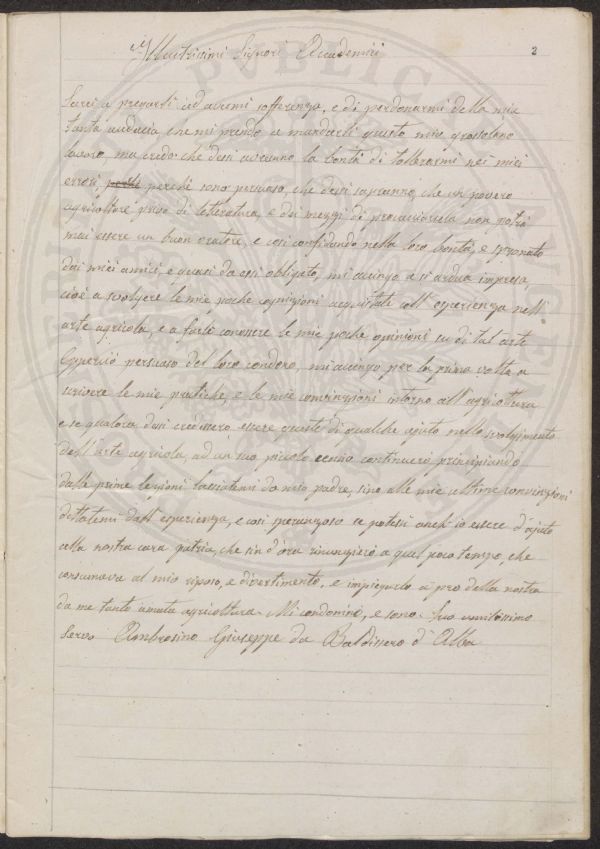 Illustrissimi Signori Accademici
2
Sarei a pregarli ad avermi sofferenza, e di perdonarmi della mia
tanta audacia che mi prendo a mandarli questo mio grossolano
lavoro, ma credo che dessi avranno la bontà di tollerarmi nei miei
errori, perché sono persuaso, che dessi sapranno, che un povero
agricoltore privo di letteratura, e dei mezzi di procacciarsela non potrà
mai essere un buon oratore, e così confidando nella loro bontà, e spronato
dai miei amici, e quasi da essi obligato, mi accingo a sì ardua impresa
cioè a svolgere le mie poche cognizioni acquistate coll'esperienza nell'
arte agricola, e a farli conoscere le mie poche opinioni su di tal arte
Epperciò persuaso del loro condono, mi accingo per la prima volta a
scrivere le mie pratiche, e le mie convinzioni intorno all'agricoltura
e se qualora dessi credessero essere queste di qualche ajuto nello svolgimento
dell'arte agricola, ad un suo piccolo cenno continuerò principiando
dalle prime lezioni lasciatemi da mio padre, sino alle mie ultime convinzioni
dettatemi dall'esperienza, e così speranzoso se potessi anch'io essere d'ajuto
alla nostra cara patria, che sin d'ora rinunzierò a quel poco tempo, che
consumava al mio riposo, e divertimento, e impiegarlo a pro della nostra
da me tanto amata agricoltura. Mi condonino, e sono: Suo umilissimo
Servo Ambrosino Giuseppe da Baldissero d'Alba